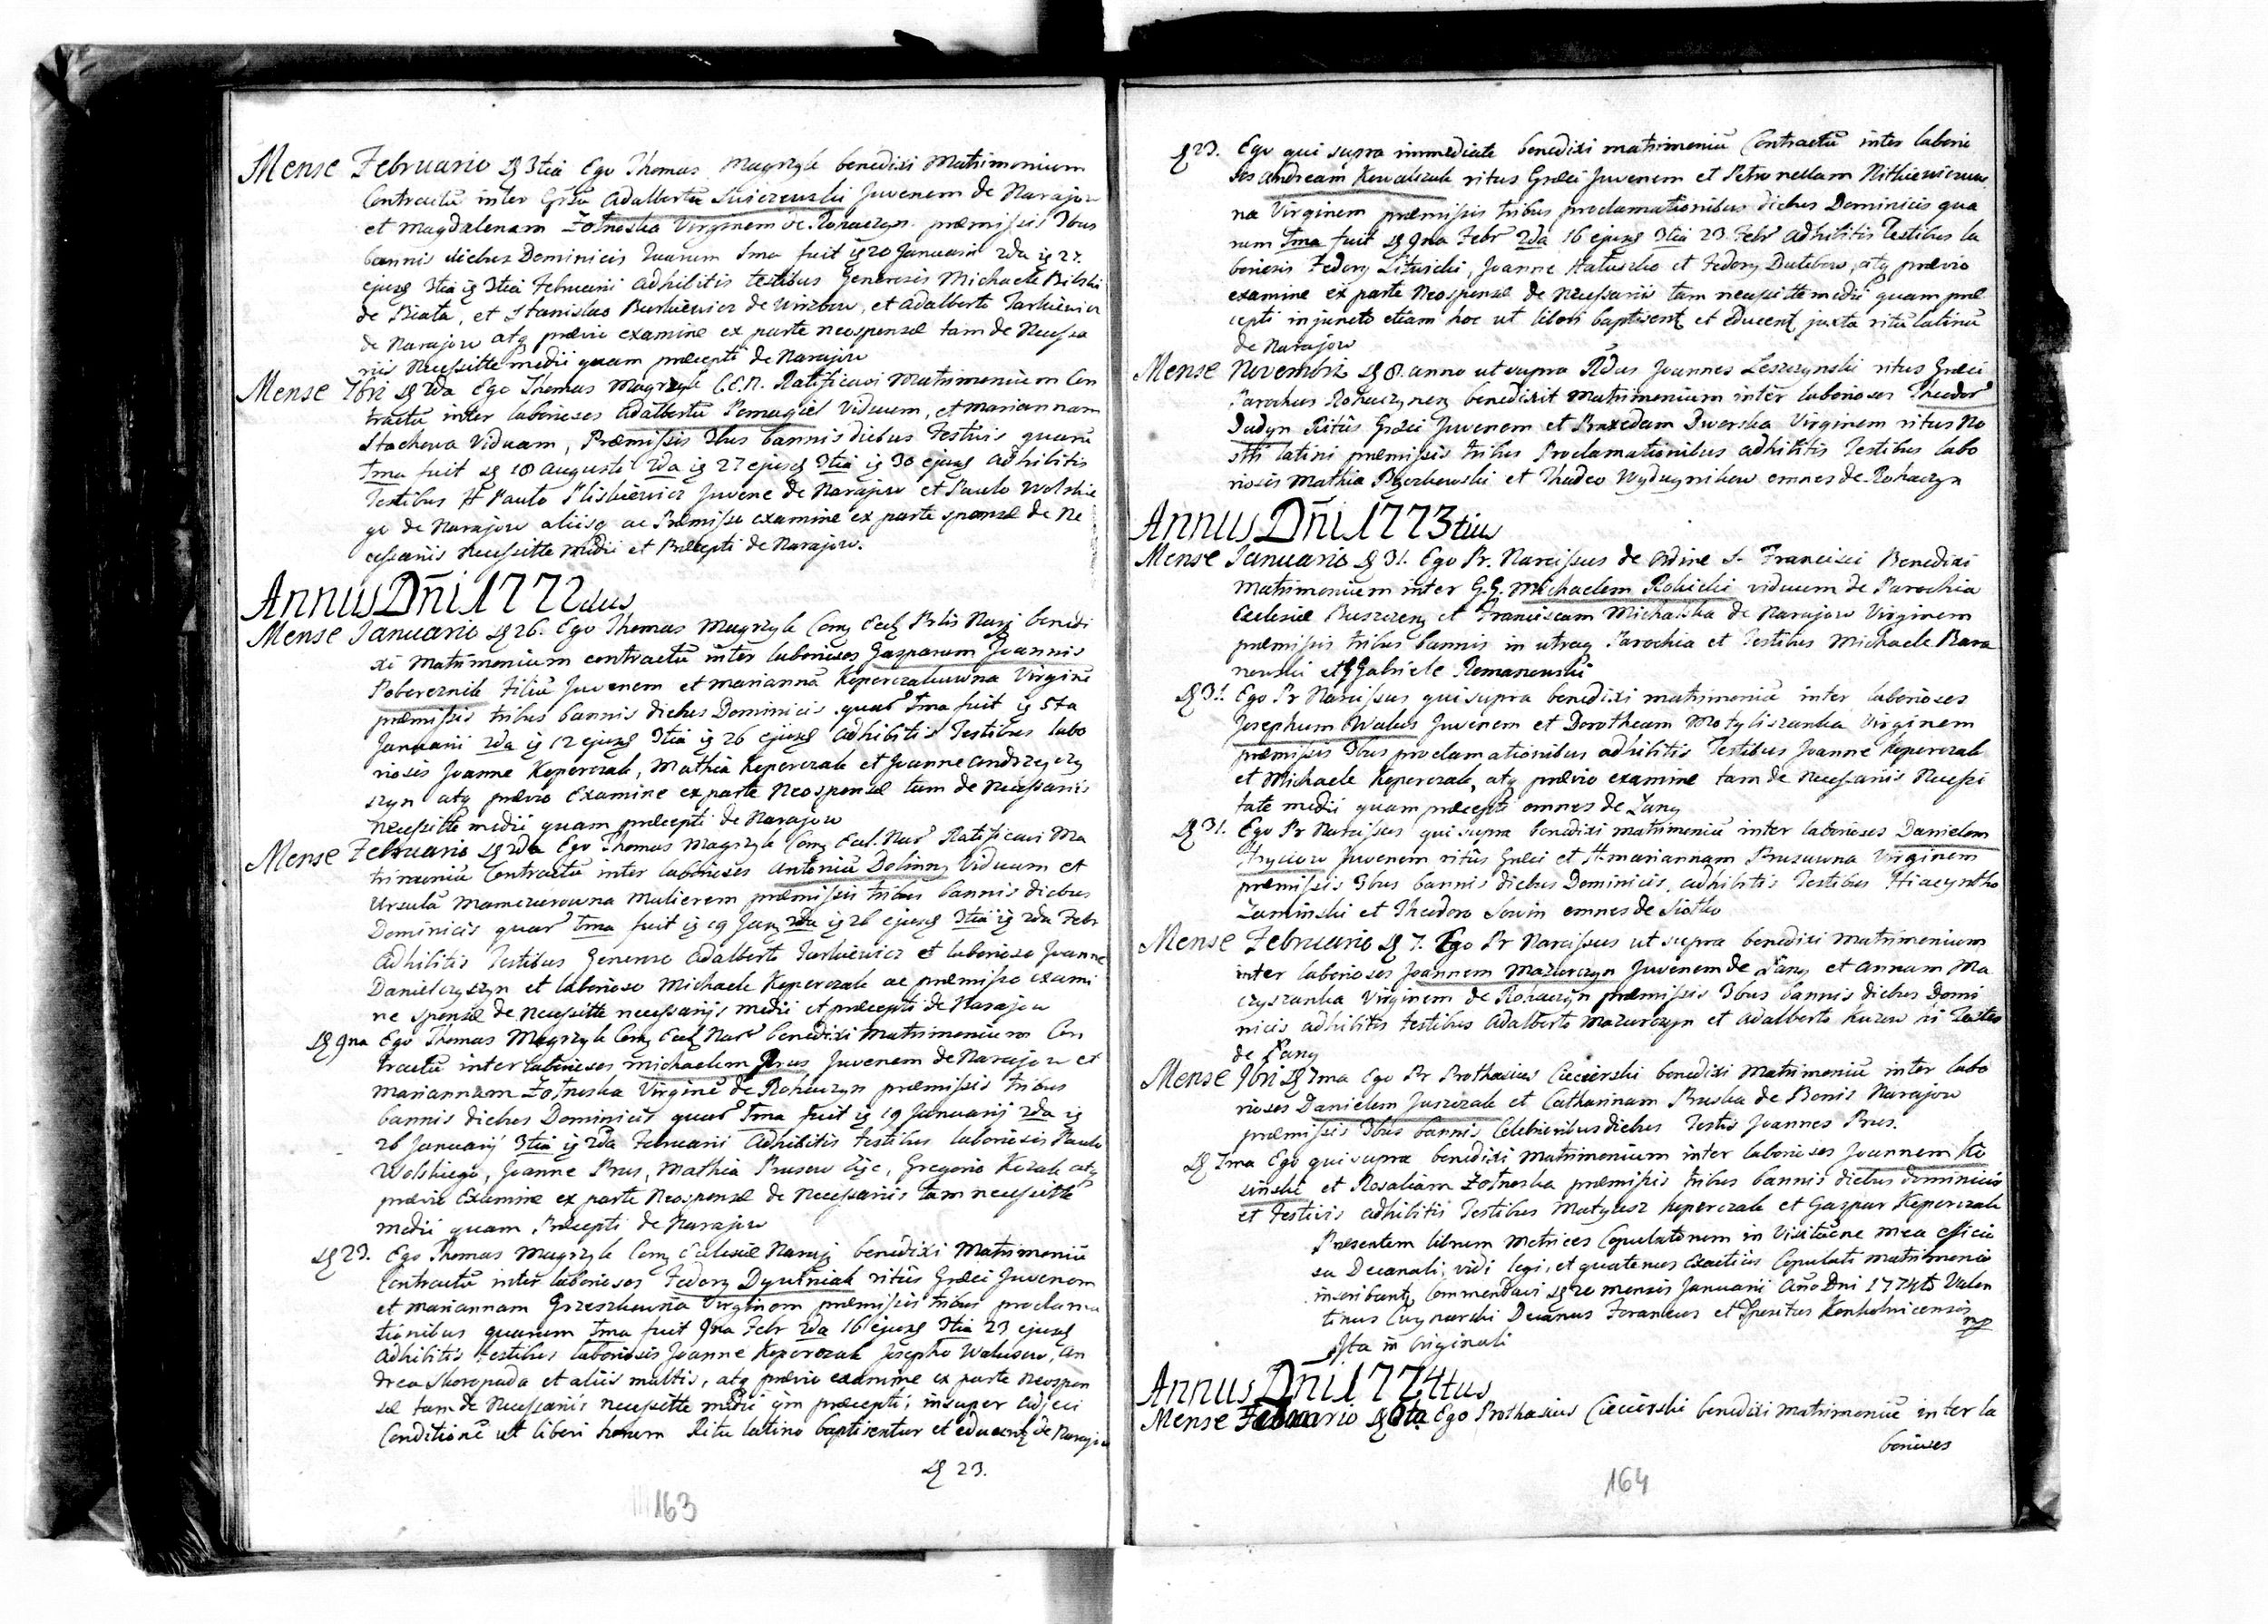 Mense Februario d 3tia Ego Thomas Magrzyk benedixi Matrimonium
Contractū inter Adalbertū Juvenem de Narajow
et Magdalenam Zołnoska Virginem de Rohaczyn præmissis 3bus
bannis diebus Dominicis quarum 1ma fuit 20 Januarii 2da 27.
ejusq 3tia 3tia Februarii adhibitis testibus Generosis Michaele Bilski
de Biała, et Stanislao Burkiewicz de , et Adalberto Tarkiewicz
de Narajow atq prævio examine ex parte neosponsæ tam de Necessa
riis Necessitte medii quam præcepti de Narajow
Mense 7bri 2da Ego Thomas Magrzyk C.E.N. Ratificavi Matrimonium Con
tractū inter laborioses Adalbertū Pomagiel Viduum, et Mariannam
Stachowa Viduam, Præmissis 3bus bannis diebus Festivis quarū
1ma fuit 18 Augusti 2da 27 ejusq 3tia 30 ejusq adhibitis
Testibus Paulo Pliskiewicz Juvene de Narajow et Paulo Wolskie
go de Narajow aliisq ac Præmisso examine ex parte sponsæ de Ne
cessariis necessitte medii et Præcepti de Narajow.
Annus Dñi 1772dus
Mense Januario 26. Ego Thomas Magrzyk Com Eccl Prlis Narj benedi
xi Matrimonium contractū inter laborioses Gasparum Joannis
Pobereznik filiū Juvenem et Mariannā Keperczakowna Virginē
præmissis tribus bannis diebus Dominicis quar 1ma fuit 5ta
Januarii 2da 12 ejusq 3tia 26 ejusq adhibitis Testibus labo
riosis Joanne Keperczak, Mathia Keperczak et Joanne Andrzyczy
szyn atq prævio Examine ex parte Neosponsæ tam de Necessariis
Necessitte medii quam præcepti de Narajow
Mense Februario 2da Ego Thomas Magrzyk Com Eccl. Nar Ratificavi Ma
trimoniū Contractū inter laborioses Antoniū Dolinny Viduum et
Ursulā Mamczurowna Mulierem præmissis tribus bannis diebus
Dominicis quar 1ma fuit 19 Jany 2da 26 ejusq 3tia 2da Febr
Adhibitis Testibus Generoso Adalberto Tarkiewicz et laborioso Joanne
Danielczyszyn et laborioso Michaele Keperczak ac præmisso exami
ne sponsæ de necessitte necessarijs medii et præcepti de Narajow
9na Ego Thomas Magrzyk Com Eccl Nar benedixi Matrimonium Con
tractū inter laborioses Michaelem Prus Juvenem de Narajow et
Mariannam Zołnoska Virginē de Rohaczyn præmissis tribus
bannis diebus Dominicis quar 1ma fuit 19 Januarij 2da
26 Januarij 3tia 2da Februarii Adhibitis testibus laboriosis Paulo
Wolskiego, Joanne Prus, Mathia Prusow , Gregorio Kozak atq
prævio Examine ex parte Neosponsæ de necessariis tam necessitte
medii quam Præcepti de Narajow
23. Ego Thomas Magrzyk Com Ecclesiæ Naraj benedixi Matrimoniū
Contractū inter laborioses Fedory Dyutniak ritūs Græci Juvenem
et Mariannam Grzeszkowna Virginem præmissis tribus proclama
tionibus quarum 1ma fuit 9na Febr 2da 16 ejusq 3tia 23 ejusq
Adhibitis testibus laboriosis Joanne Keperczak Josepho Walusow, An
drea Skoropada et aliis multis, atq prævio examine ex parte Neospon
sæ tam de Necessariis necessitte medii qm præcepti; insuper adjeci
Conditionē ut liberi horum Ritu latino baptisentur et educent de Narajow
23.
163
23. Ego qui supra immediate benedixi matrimoniū Contractū inter laborio
ses Andream Kowalczak ritus Græci Juvenem et Petronellam
na Virginem præmissis tribus proclamationibus diebus Dominicis qua
rum 1ma fuit 9na Febr 2da 16 ejusq 3tia 23 Febr adhibitis Testibus la
boriosis Fedory , Joanne Hatuszko et Fedory Dutkow, atq prævio
examine ex parte Neosponsæ de Necessariis tam necessitte medii quam præ
cepti injuncto etiam hoc ut liberi baptisent et Educent juxta ritū latinū
de Narajow
Mense Novembris 8. anno ut supra Rdus Joannes Leszczynski ritus Græci
Parochus Rohaczynen benedixit Matrimonium inter laborioses Theodor
Dudyn Ritūs Græci Juvenem et Praxedam Dworska Virginem ritus No
stri latini præmissis tribus Proclamationibus adhibitis Testibus labo
riosis Mathia et Thadeo Wyduynikow omnes de Rohaczyn
Annus Dñi 1773tius
Mense Januario 31. Ego Pr. Narcissus de Ordine S. Francisci Benedixi
Matrimonium inter G.G. Michaelem Rokicki viduum de Parochia
Ecclesiæ Buszczeny et Franciscam Michalska de Narajow Virginem
præmissis tribus bannis in utraq Parochia et Testibus Michaele Bara
nowski et Gabriele Romanowski
31. Ego Pr Narcissus qui supra benedixi matrimoniū inter laborioses
Josephum Walus Juvenem et Dorotheam Motyliszanka Virginem
præmissis 3bus proclamationibus adhibitis Testibus Joanne Keperczak
et Michaele Keperczak, atq prævio examine tam de necessariis Necessi
tate medii quam præcepti omnes de Łany
31. Ego Pr Narcissus qui supra benedixi matrimoniū inter laborioses Danielem
Hryciow Juvenem ritūs Græci et Mariannam Prusowna Virginem
præmissis 3bus bannis diebus Dominicis, adhibitis Testibus Hiacyntho
Zaminski et Theodoro Sowin omnes de Siołko
Mense Februario 7. Ego Pr Narcissus ut supra benedixi matrimonium
inter laborioses Joannem Mazurczyn Juvenem de Łany et Annam Ma
czyszanka Virginem de Rohaczyn præmissis 3bus bannis diebus Domi
nicis adhibitis testibus Adalberto Mazurczyn et Adalberto Kuzow
de Łany
Mense 9bri 7ma Ego Pr Prothasius Ciecierski benedixi Matrimoniū inter labo
rioses Danielem Juszczak et Catharinam Pruska de Bonis Narajow
præmissis 3bus bannis Celebrioribus diebus Testis Joannes Prus.
7ma Ego qui supra benedixi Matrimonium inter laborioses Joannem Ki
sinski et Rosaliam Zołnoska præmissis tribus bannis diebus dominicis
et festivis adhibitis Testibus Matyasz Keperczak et Gaspar Keperczak
Præsentem librum metrices Copulatorum in Visitaōne mea officio
sa Decanali, vidi legi, et quatenus exactius Copulati matrimonio
inscribant, commendavi 20 mensis Januarii Año Dni 1774to Valen
tinus Decanus Foraneus et Konkolnicensis
mp
Ita in Originali
Annus Dñi 1774tus
Mense Februario 6ta Ego Prothasius Ciecierski benedixi Matrimoniū inter la
borioses
164